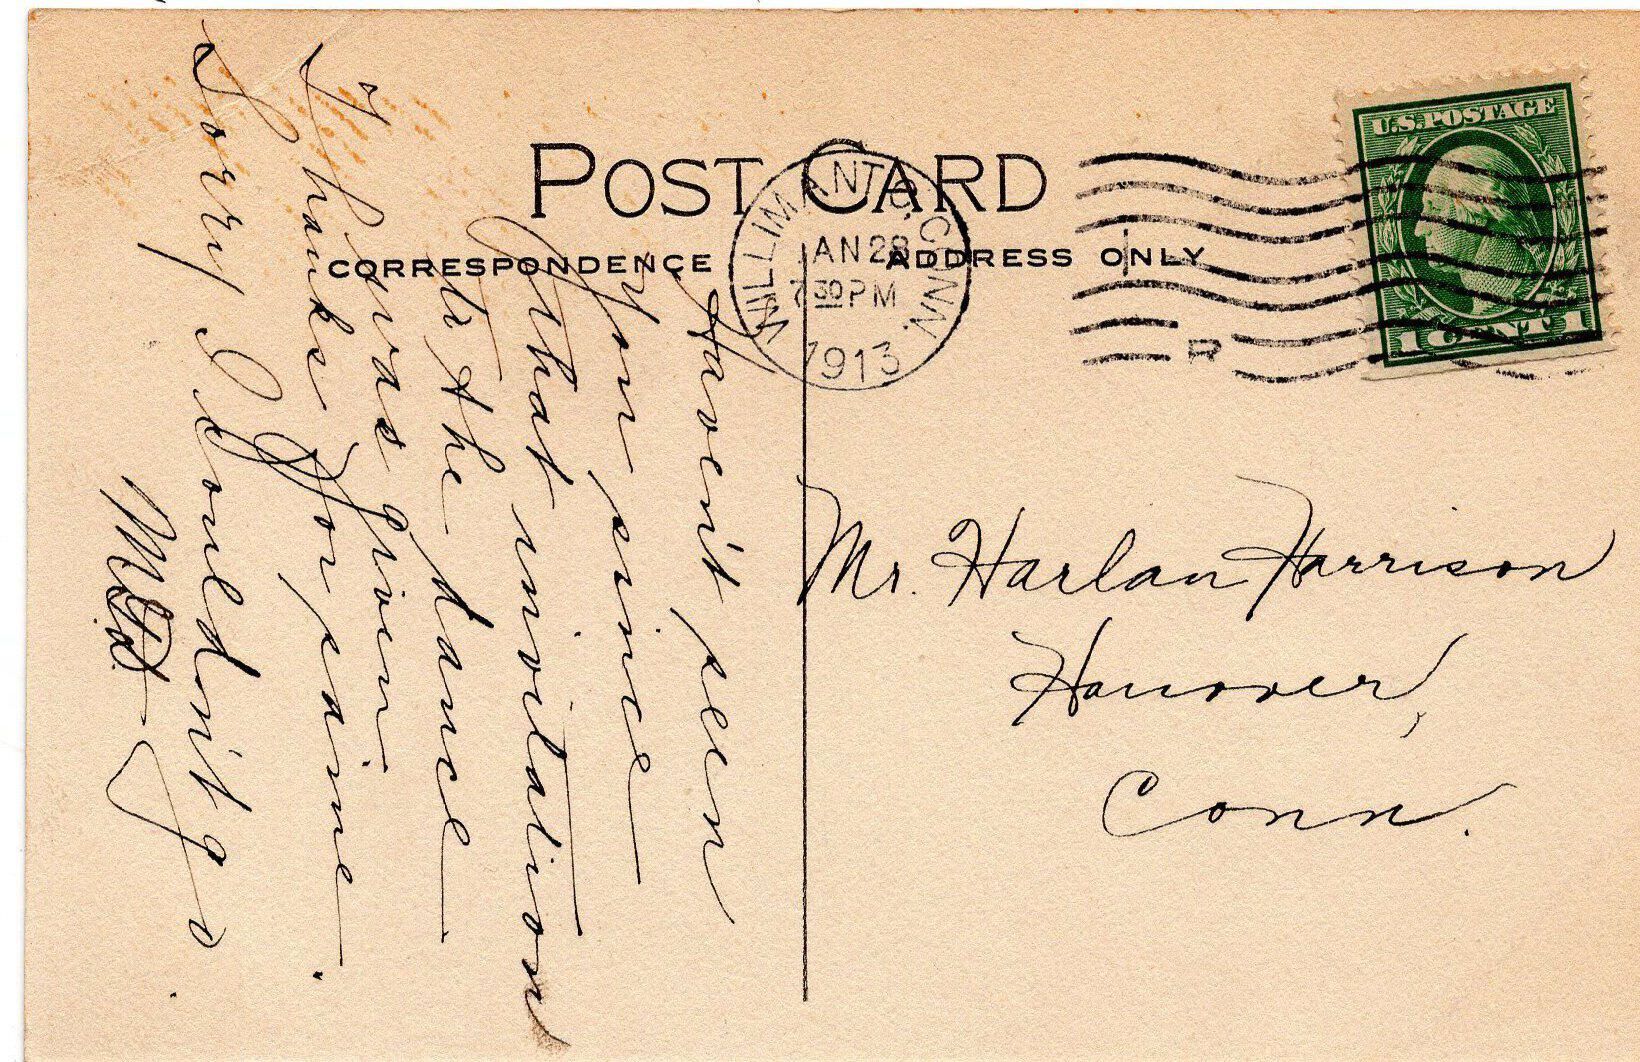 POST CARD
CORRESPONDENCE
ADDRESS ONLY
WILLIMANTIC, CONN.
JAN 28
7 30 PM
1913
R
U.S. POSTAGE
1 CENT 1
Haven't seen
You since
that invitation
to the dance
I was given
Thanks for same.
Sorry I Couldn't go.
Mr. Harlan Harrison
Hanover,
Conn.